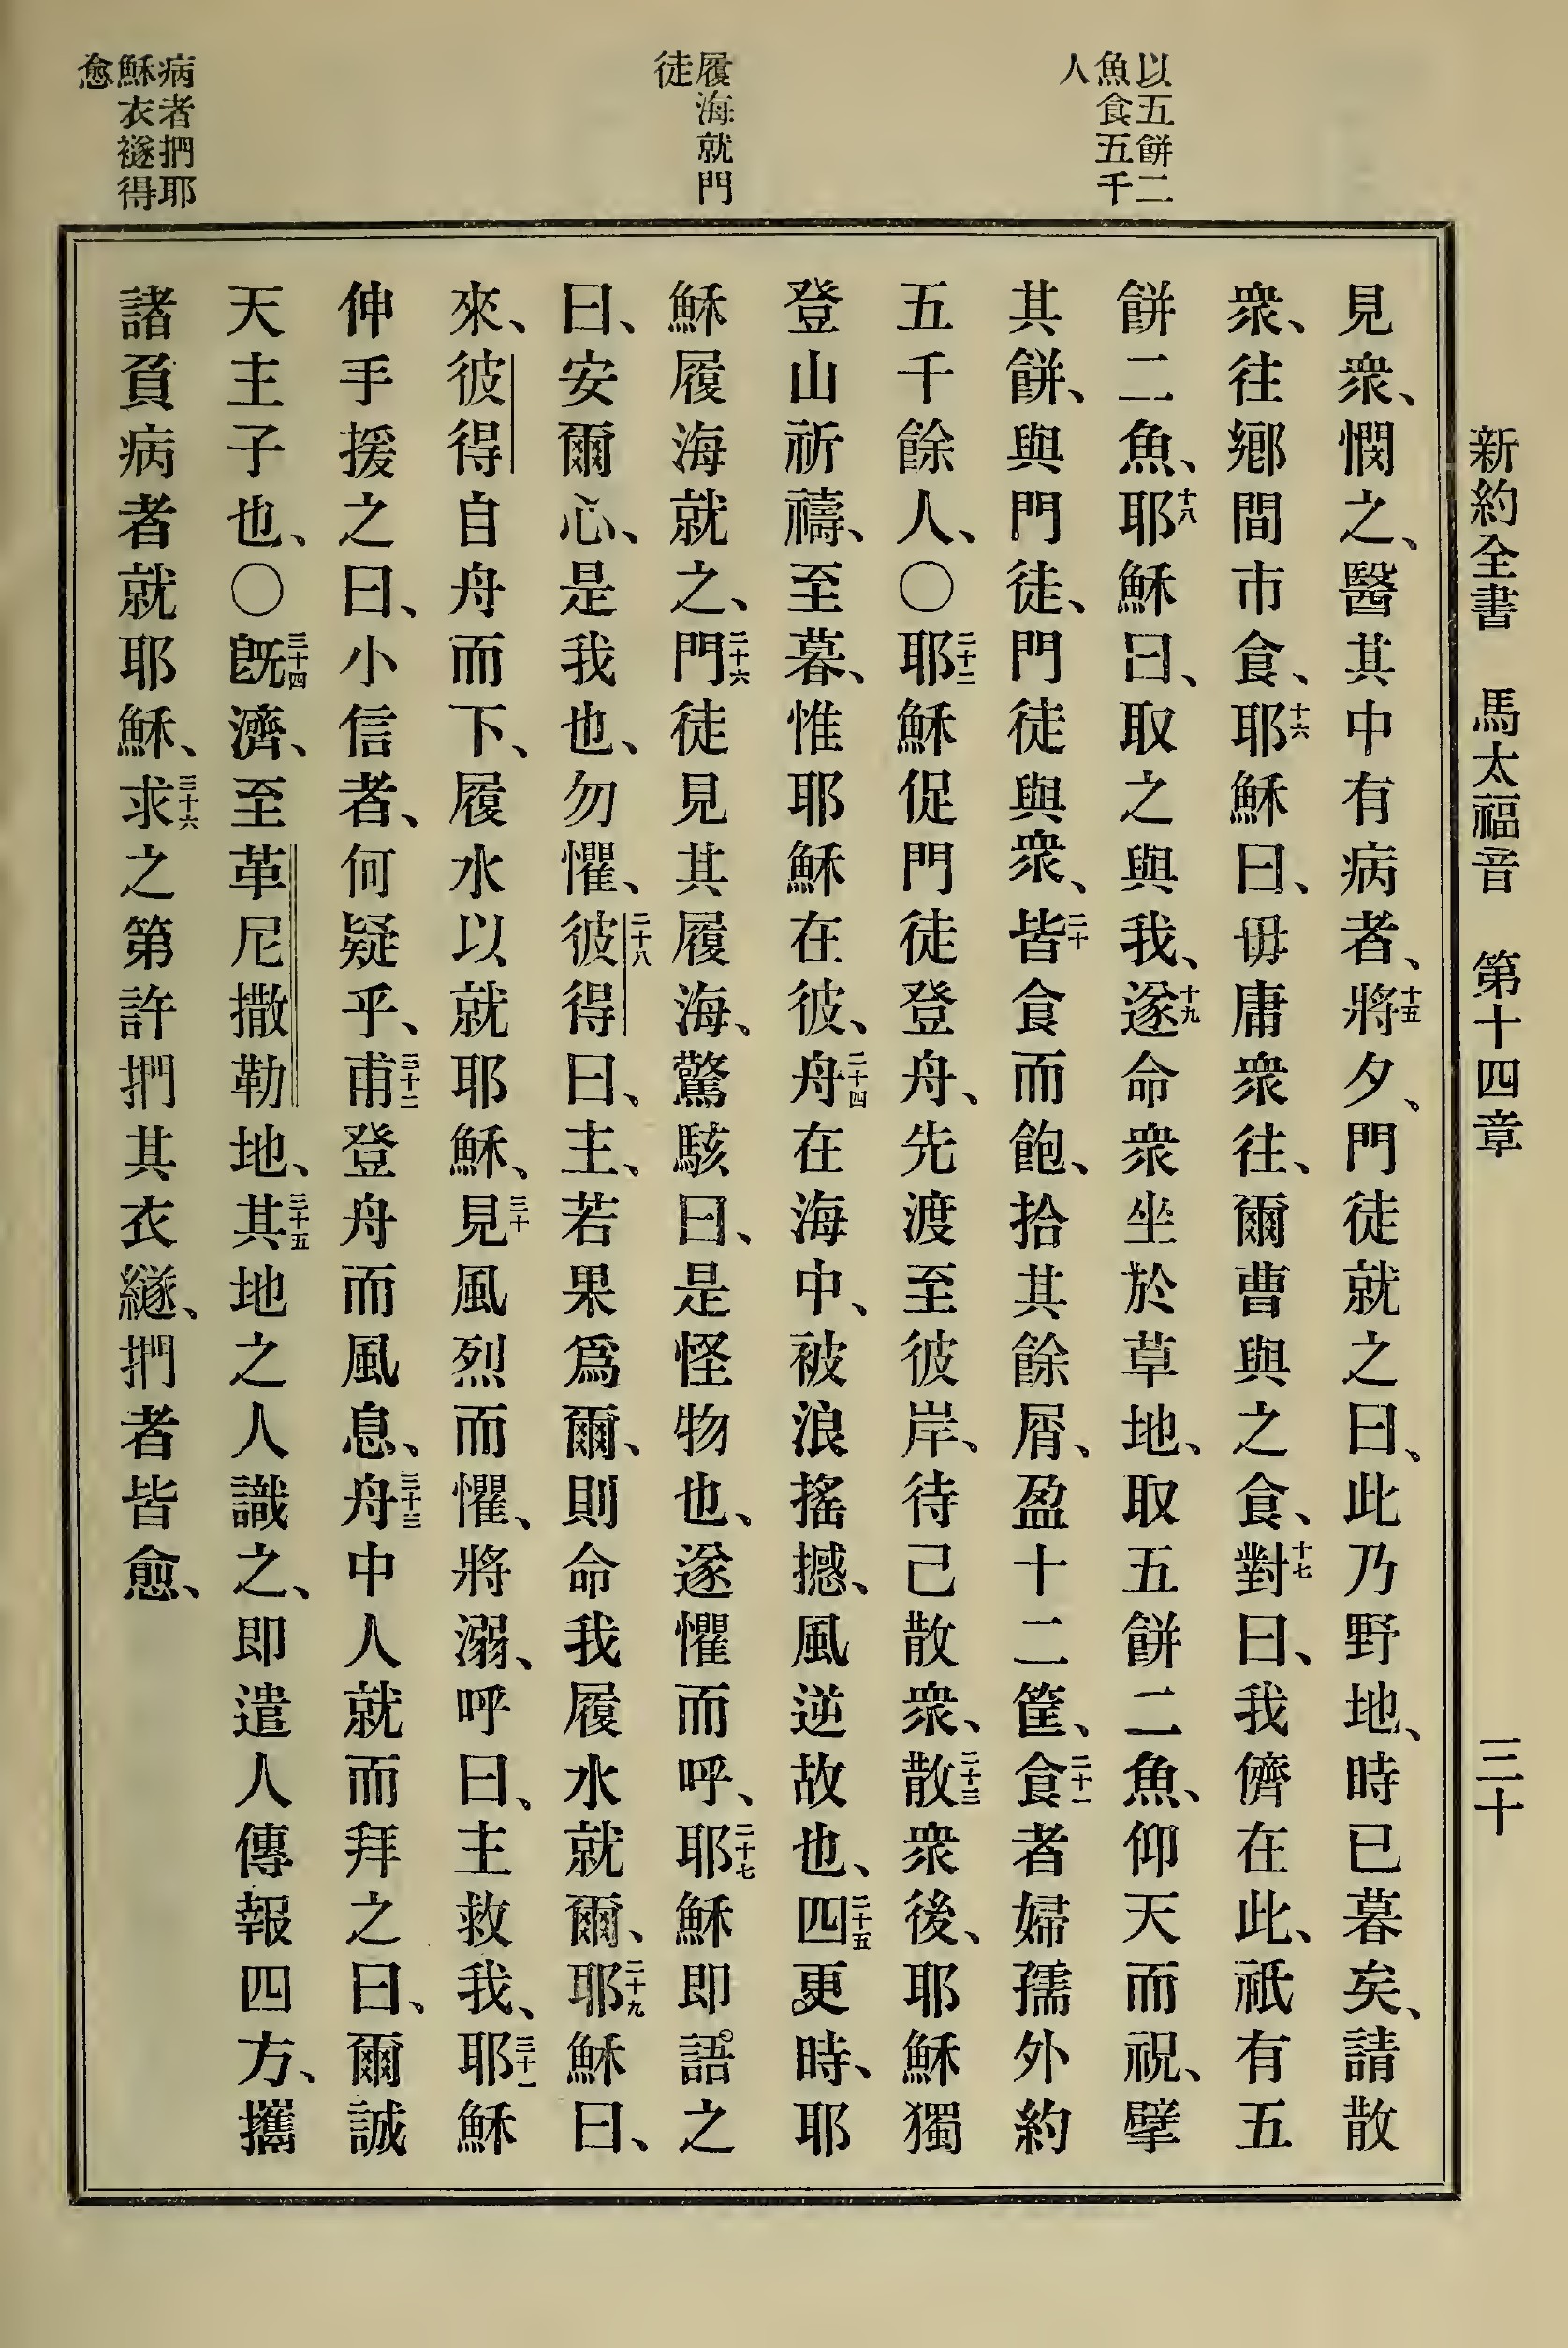 新約全書　馬太福音　第十四章　三十
以五餅二
魚食五千
人
履海就門
徒
病者捫耶
穌衣襚得
愈
見衆、憫之、醫其中有病者、十五將夕、門徒就之曰、此乃野地、時已暮矣、請散
衆、往鄉間市食、十六耶穌曰、毋庸衆往、爾曹與之食、十七對曰、我儕在此、祇有五
餅二魚、十八耶穌曰、取之與我、十九遂命衆坐於草地、取五餅二魚、仰天而祝、擘
其餅、與門徒、門徒與衆、二十皆食而飽、拾其餘屑、盈十二筐、二十一食者婦孺外約
五千餘人、〇二十二耶穌促門徒登舟、先渡至彼岸、待己散衆、二十三散衆後、耶穌獨
登山祈禱、至暮、惟耶穌在彼、二十四舟在海中、被浪搖撼、風逆故也、二十五四更時、耶
穌履海就之、二十六門徒見其履海、驚駭曰、是怪物也、遂懼而呼、二十七耶穌即語之
曰、安爾心、是我也、勿懼、二十八彼得曰、主、若果爲爾、則命我履水就爾、二十九耶穌曰、
來、彼得自舟而下、履水以就耶穌、三十見風烈而懼、將溺、呼曰、主救我、三十一耶穌
伸手援之曰、小信者、何疑乎、三十二甫登舟而風息、三十三舟中人就而拜之曰、爾誠
天主子也、〇三十四既濟、至革尼撒勒地、三十五其地之人識之、即遣人傳報四方、攜
諸負病者就耶穌、三十六求之第許捫其衣繸、捫者皆愈、